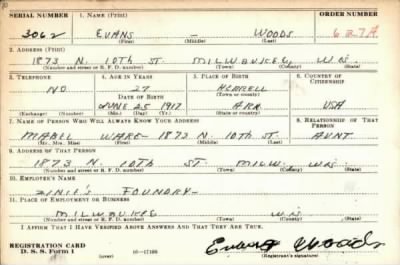 SERIAL NUMBER 1. NAME (Print) ORDER NUMBER
3062 EVANS - WOODS 627A
(First) (Middle) (Last)
2. ADDRESS (Print)
1873 N. 10TH ST. MILWAUKEE, WIS.
(Number and street or R. F. D. number) (Town) (County) (State)
3. TELEPHONE 4. AGE IN YEARS 5. PLACE OF BIRTH 6. COUNTRY OF CITIZENSHIP
NO 27
DATE OF BIRTH (Town or county)
JUNE 25 1917 ARK. USA
(Exchange) (Number) (Mo.) (Day) (Yr.) (State or country)
7. NAME OF PERSON WHO WILL ALWAYS KNOW YOUR ADDRESS 8. RELATIONSHIP OF THAT PERSON
MABEL WARE - 1873 N. 10TH ST. AUNT
(Mr., Mrs., Miss) (First) (Middle) (Last)
9. ADDRESS OF THAT PERSON
1873 N. 10TH ST. MILW. WIS.
(Number and street or R. F. D. number) (Town) (County) (State)
10. EMPLOYER'S NAME
FOUNDRY -
11. PLACE OF EMPLOYMENT OR BUSINESS
MILWAUKEE WIS
(Number and street or R. F. D. number) (Town) (County) (State)
I AFFIRM THAT I HAVE VERIFIED ABOVE ANSWERS AND THAT THEY ARE TRUE.
REGISTRATION CARD
D. S. S. Form 1 (over) 16-17105 Evans Woods
(Registrant's signature)